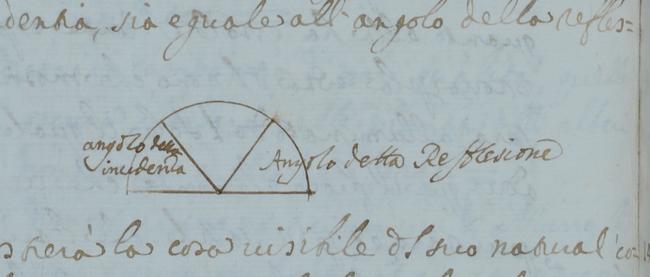 denzia, sia eguale all'angolo della refles=
angolo della
incidenza
Angolo della Reflesione
la cosa visibile del suo natural co=